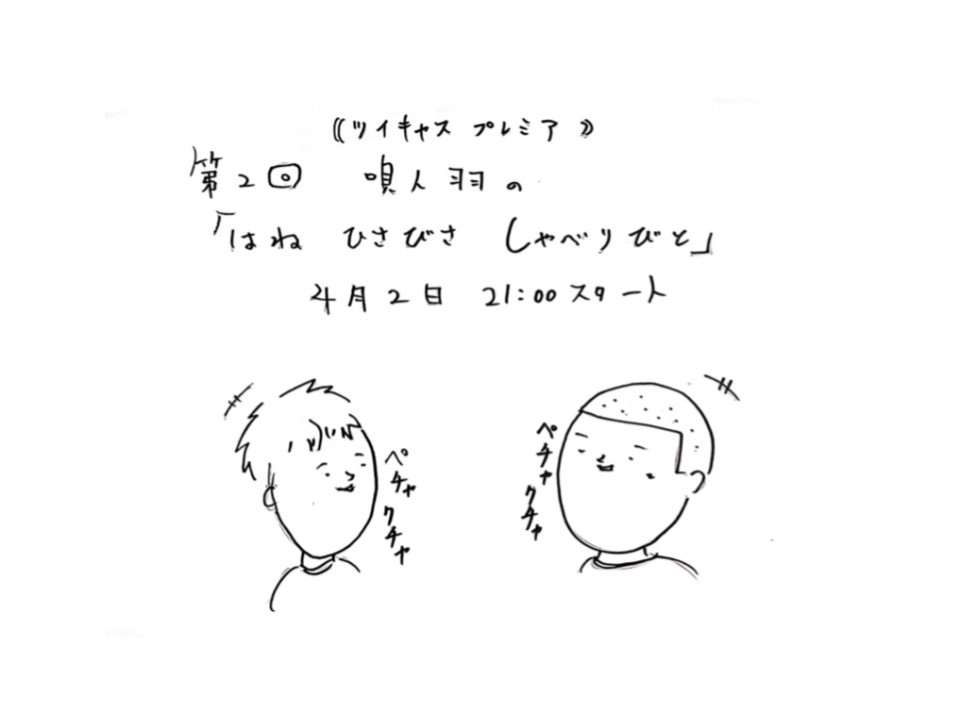 《ツイキャス プレミア》
第2回 唄人羽の
「はね ひさびさ しゃべりびと」
4月2日 21:00スタート
ペチャクチャ
ペチャクチャ